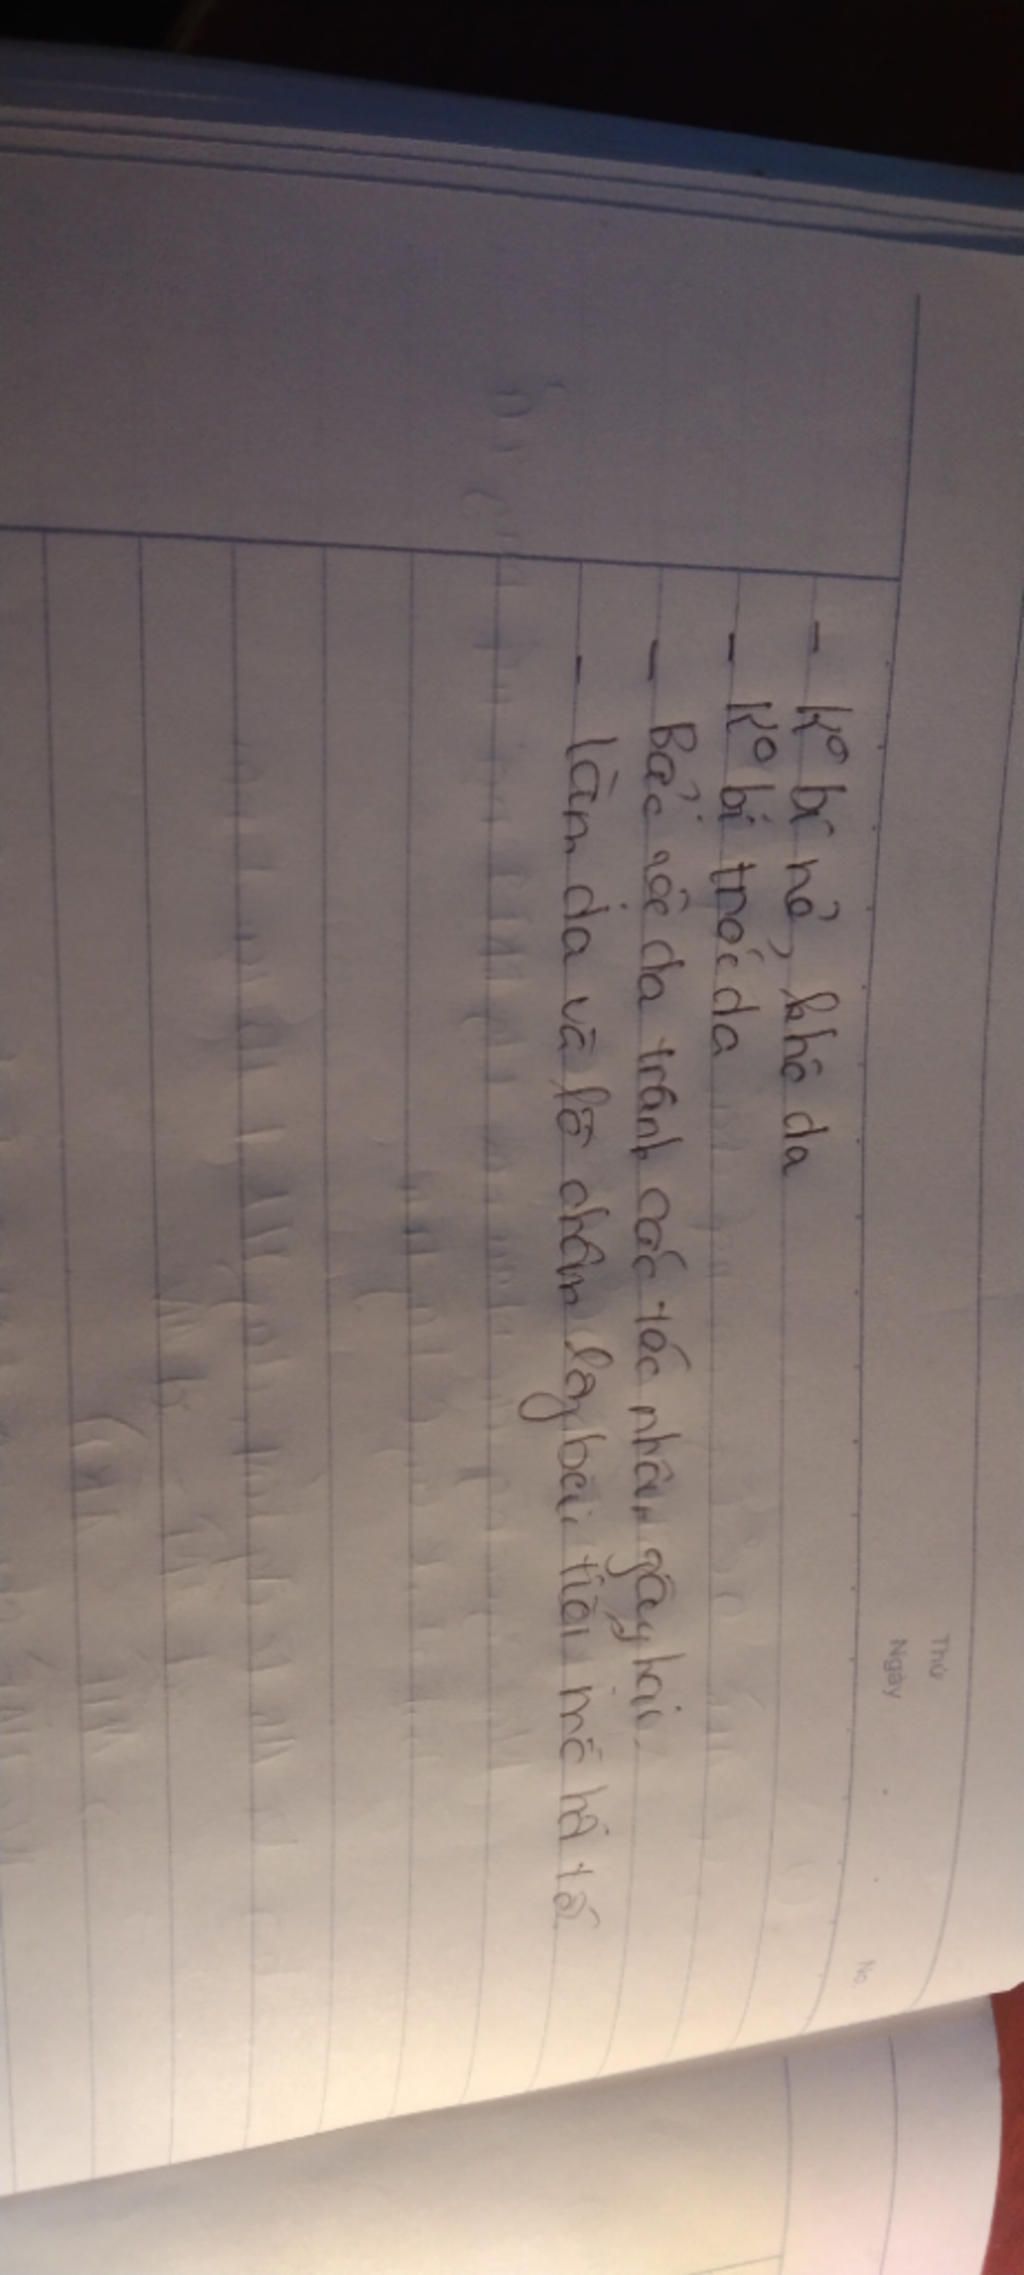 Thứ
Ngày
No.
- K° bị nẻ, khô da
- K° bị tróc da
- Bảo vệ da tránh các tác nhân gây hại.
- làm da và lỗ chân lông bài tiết mồ hôi tố